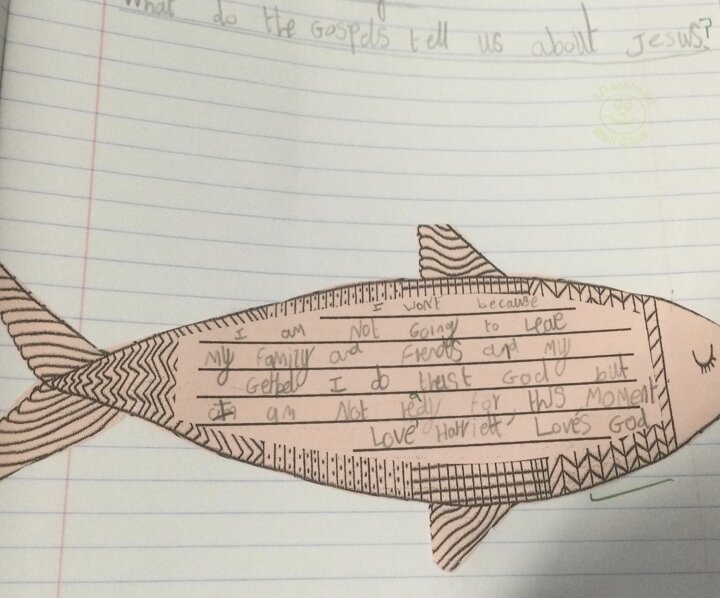 What do the Gospels tell us about Jesus?
I wont because
I am Not Going to Leave
My Family and Frends and My
I do trust God but
I am Not redy For this MoMent
Love Harriett Loves God